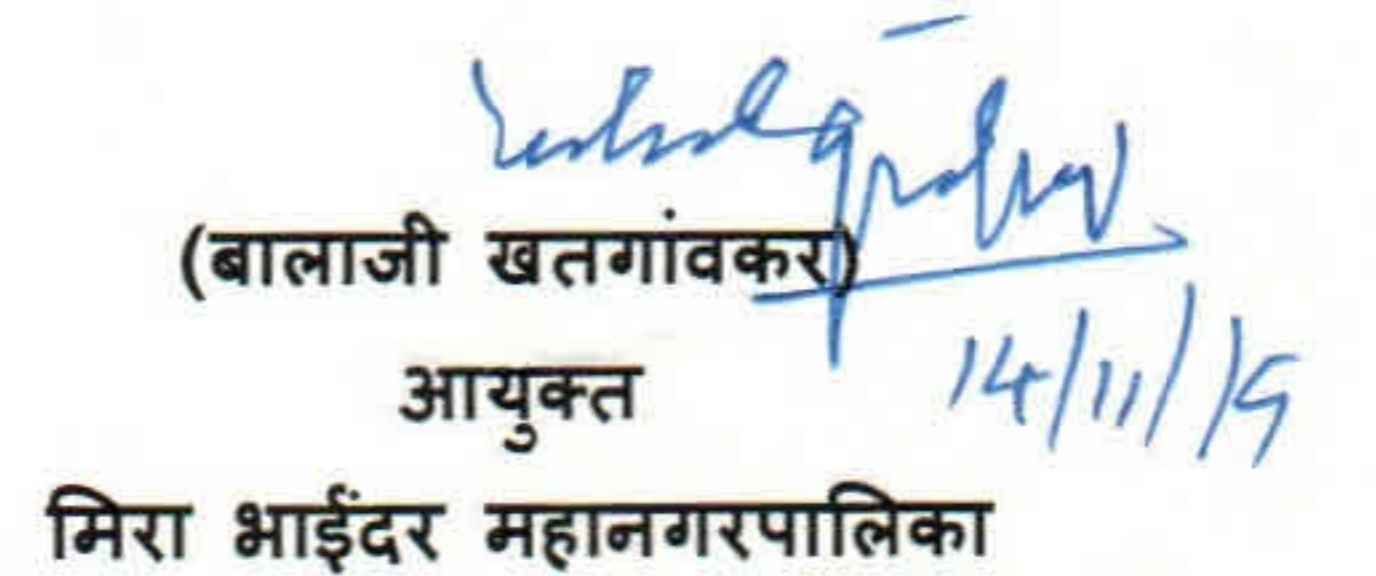 (बालाजी खतगांवकर)
14/11/19
आयुक्त
मिरा भाईंदर महानगरपालिका